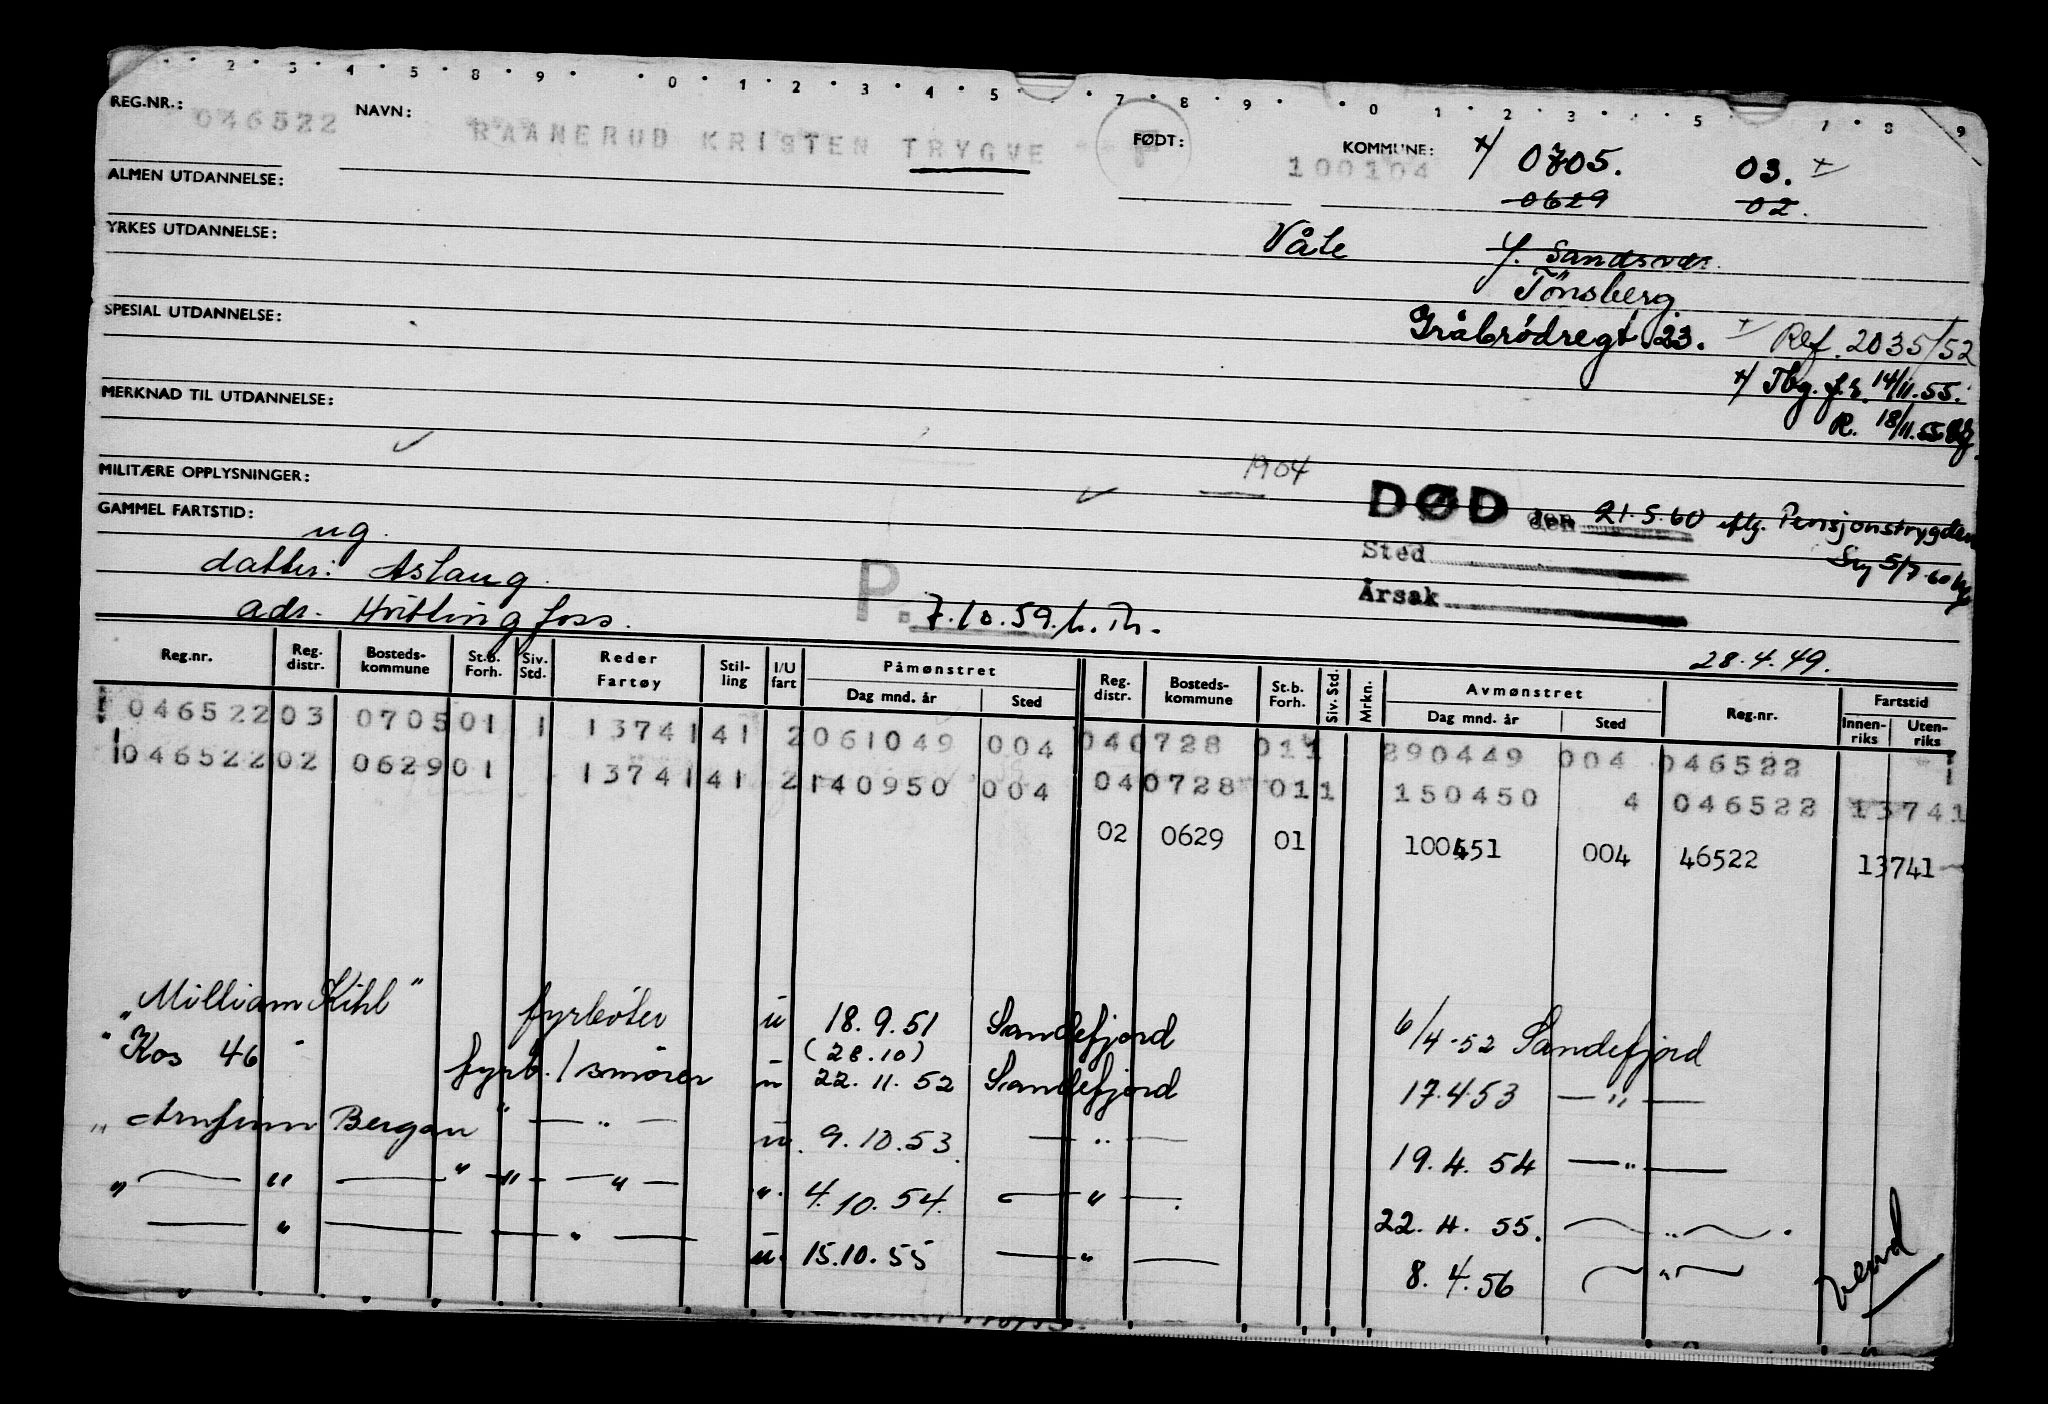 2 3 4 5 8 9 0 1 2 3 4 5 7 8 9 0 1 2 3 5 7 8 9
REG.NR.: 046522 NAVN: RAANERUD KRISTEN TRYGVE F FØDT: 100104 KOMMUNE: x/ 0705. 03. x
0629 02.
ALMEN UTDANNELSE:
YRKES UTDANNELSE: Våle Y. Sandsvær.
Tönsberg
SPESIAL UTDANNELSE: Gråbrødregt 23. Ref. 2035/52
x/ Tbg. f.r. 14/11.55.
MERKNAD TIL UTDANNELSE: R. 18/11.55
MILITÆRE OPPLYSNINGER: 1904
DØD den 21.5.60 eftg. Pensjonstrygden
GAMMEL FARTSTID: ug.
Sted 5/7.60
datter: Aslaug.
Årsak
adr. Hvittingfoss. P. 7.10.59.
28.4.49.
Reg.nr. Reg. distr. Bosteds-kommune St.b. Forh. Siv. Std. Reder Fartøy Stil-ling I/U fart Påmønstret Dag mnd. år Sted Reg. distr. Bosteds-kommune St.b. Forh. Siv. Std. Mrkn. Avmønstret Dag mnd. år Sted Reg.nr. Fartstid Innen-riks Uten-riks
046522 03 0705 01 1 13741 41 2 061049 004 040728 011 290449 004 046522
046522 02 0629 01 13741 41 2 140950 004 040728 011 150450 4 046522 13741
02 0629 01 100451 004 46522 13741
"William Kihl" fyrbøter u 18.9.51 Sandefjord 6/4-52 Sandefjord
(28.10)
"Kos 46" fyrb./smører u 22.11.52 Sandefjord 17.4.53 — " —
"Arnfinn Bergan" — " — u. 9.10.53. — " — 19.4.54 — " —
" — " — " — " — — " — ". 4.10.54. — " — . 22.4.55. — " — .
— " — — " — u. 15.10.55 — " — 8.4.56 — " —
vend